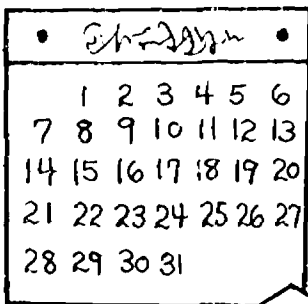 1 2 3 4 5 6
7 8 9 10 11 12 13
14 15 16 17 18 19 20
21 22 23 24 25 26 27
28 29 30 31